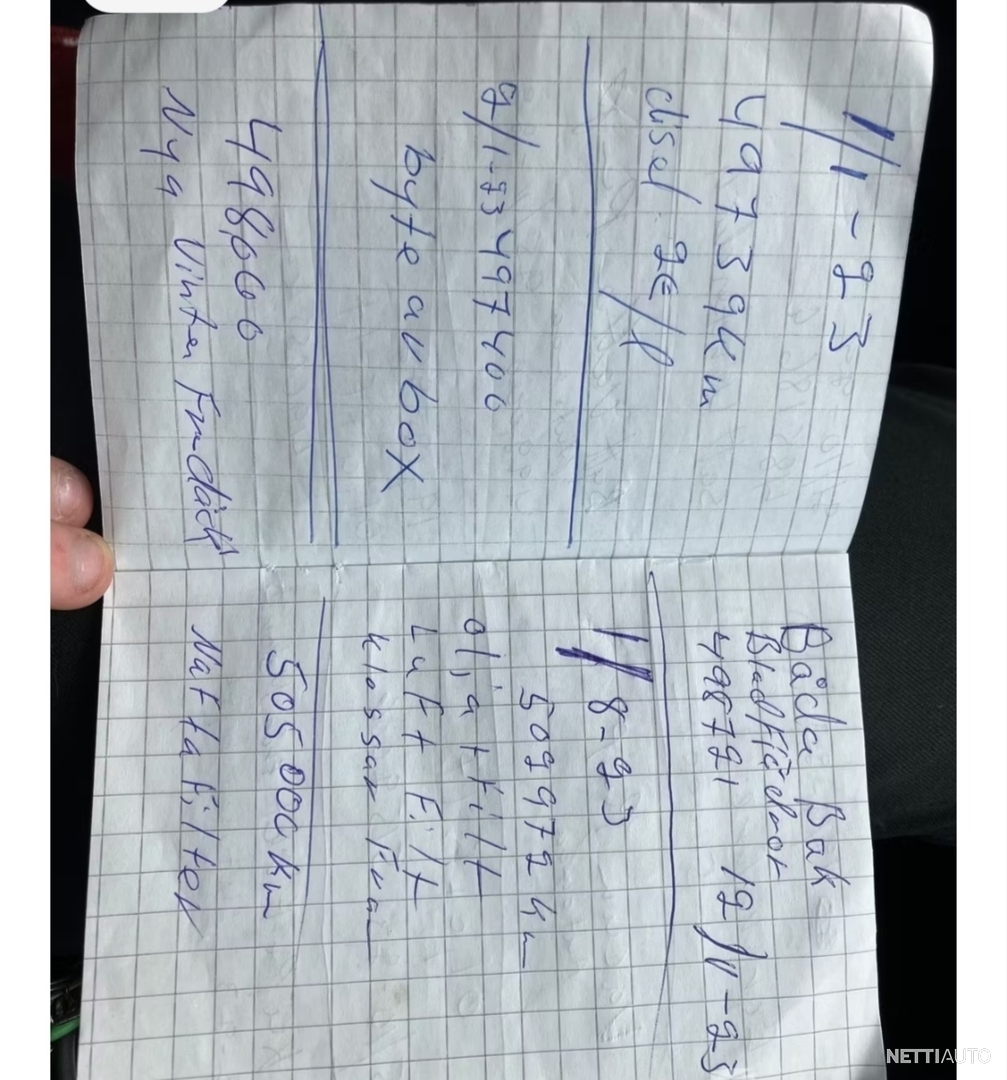 1/1-23
49739km
disel 2€/l
9/1-23 497400
byte av box
498600
Nya Vinter Framdäck
Båda Bak
Bladfjädrar
498721 12/11-23
1/8-23
509972km
olja + filt
Luft Filt
klossar Fram
505 000 km
Nafta Filter
NETTIAUTO